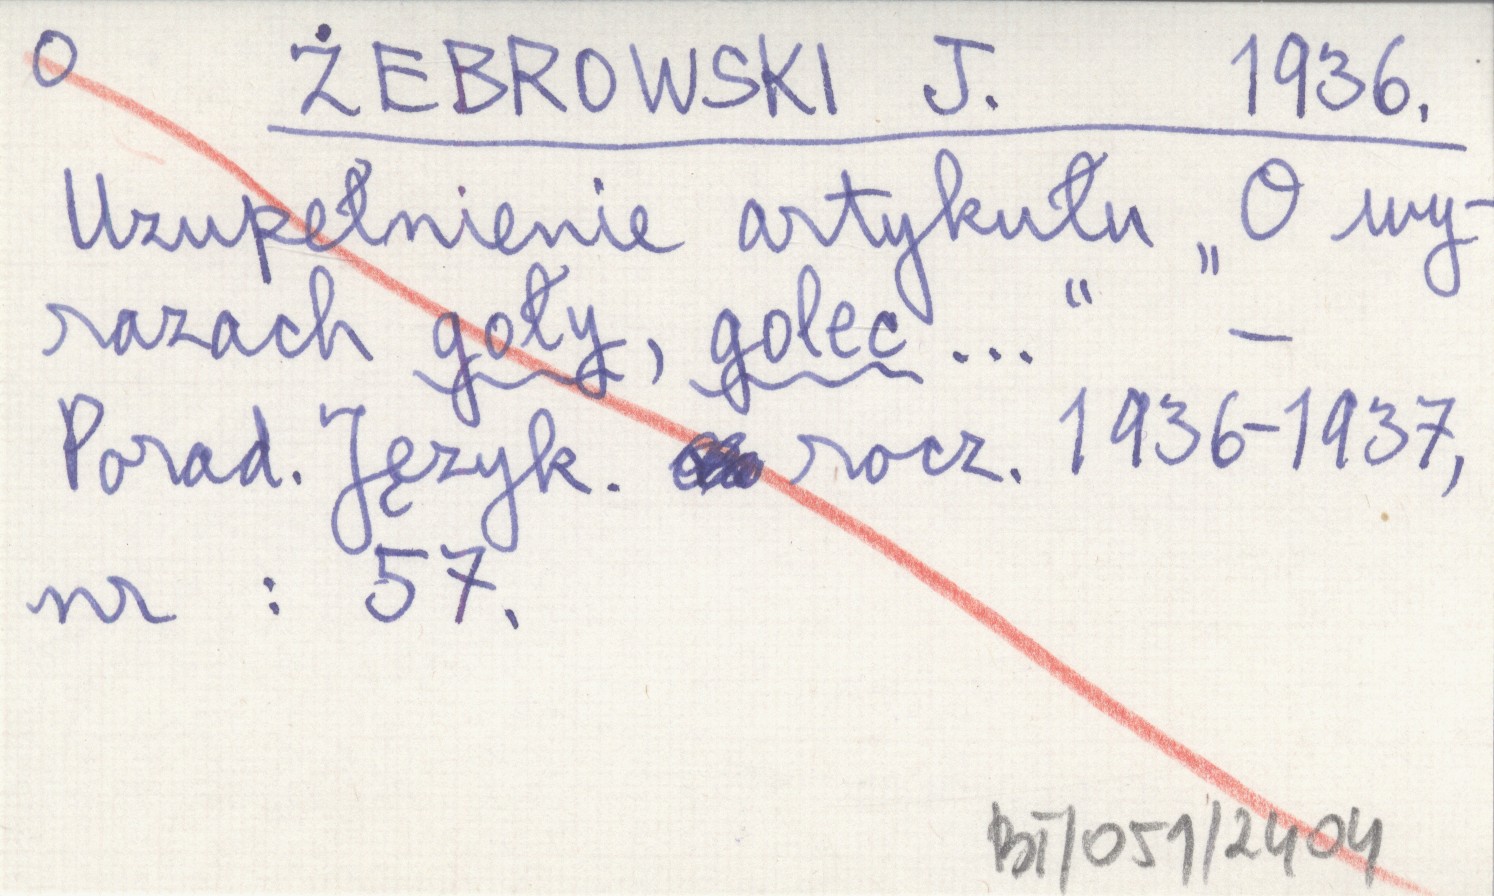 O ŻEBROWSKI J. 1936.
Uzupełnienie artykułu „O wy-
razach goły, golec ..." –
Porad. Język. rocz. 1936-1937,
nr : 57.
BI/051/2404